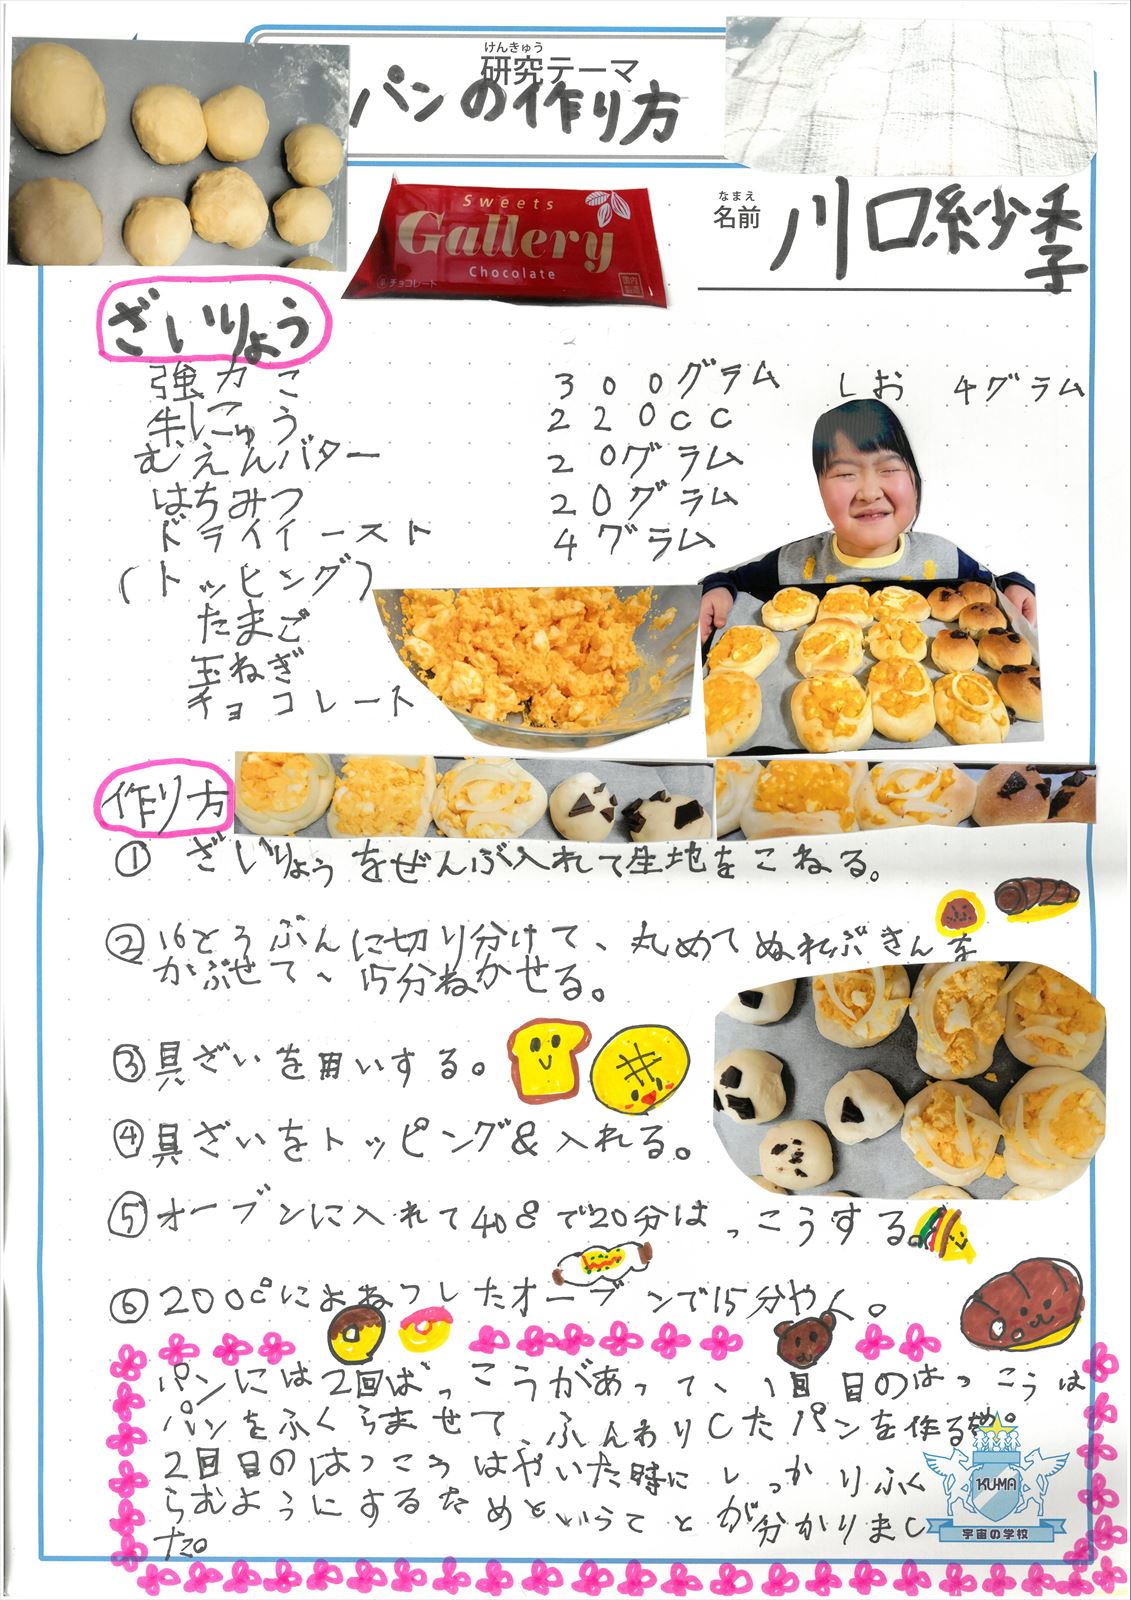 けんきゅう
研究テーマ
パンの作り方
なまえ
名前
川口紗季
Sweets
Gallery
Chocolate
チョコレート
ざいりょう
強力こ 300グラム しお 4グラム
牛にゅう 220cc
むえんバター 20グラム
はちみつ 20グラム
ドライイースト 4グラム
(トッピング)
たまご
玉ねぎ
チョコレート
作り方
① ざいりょうをぜんぶ入れて生地をこねる。
②16とうぶんに切り分けて、丸めてぬれぶきんを
かぶせて、15分ねかせる。
③具ざいを用いする。
④具ざいをトッピング&入れる。
⑤オーブンに入れて40℃で20分はっこうする。
⑥200℃によねつしたオーブンで15分やく。
パンには2回はっこうがあって、1回目のはっこうは
パンをふくらませて、ふんわりしたパンを作るため。
2回目のはっこうはやいた時にしっかりふく
らむようにするためということが分かりまし
た。
KUMA
宇宙の学校